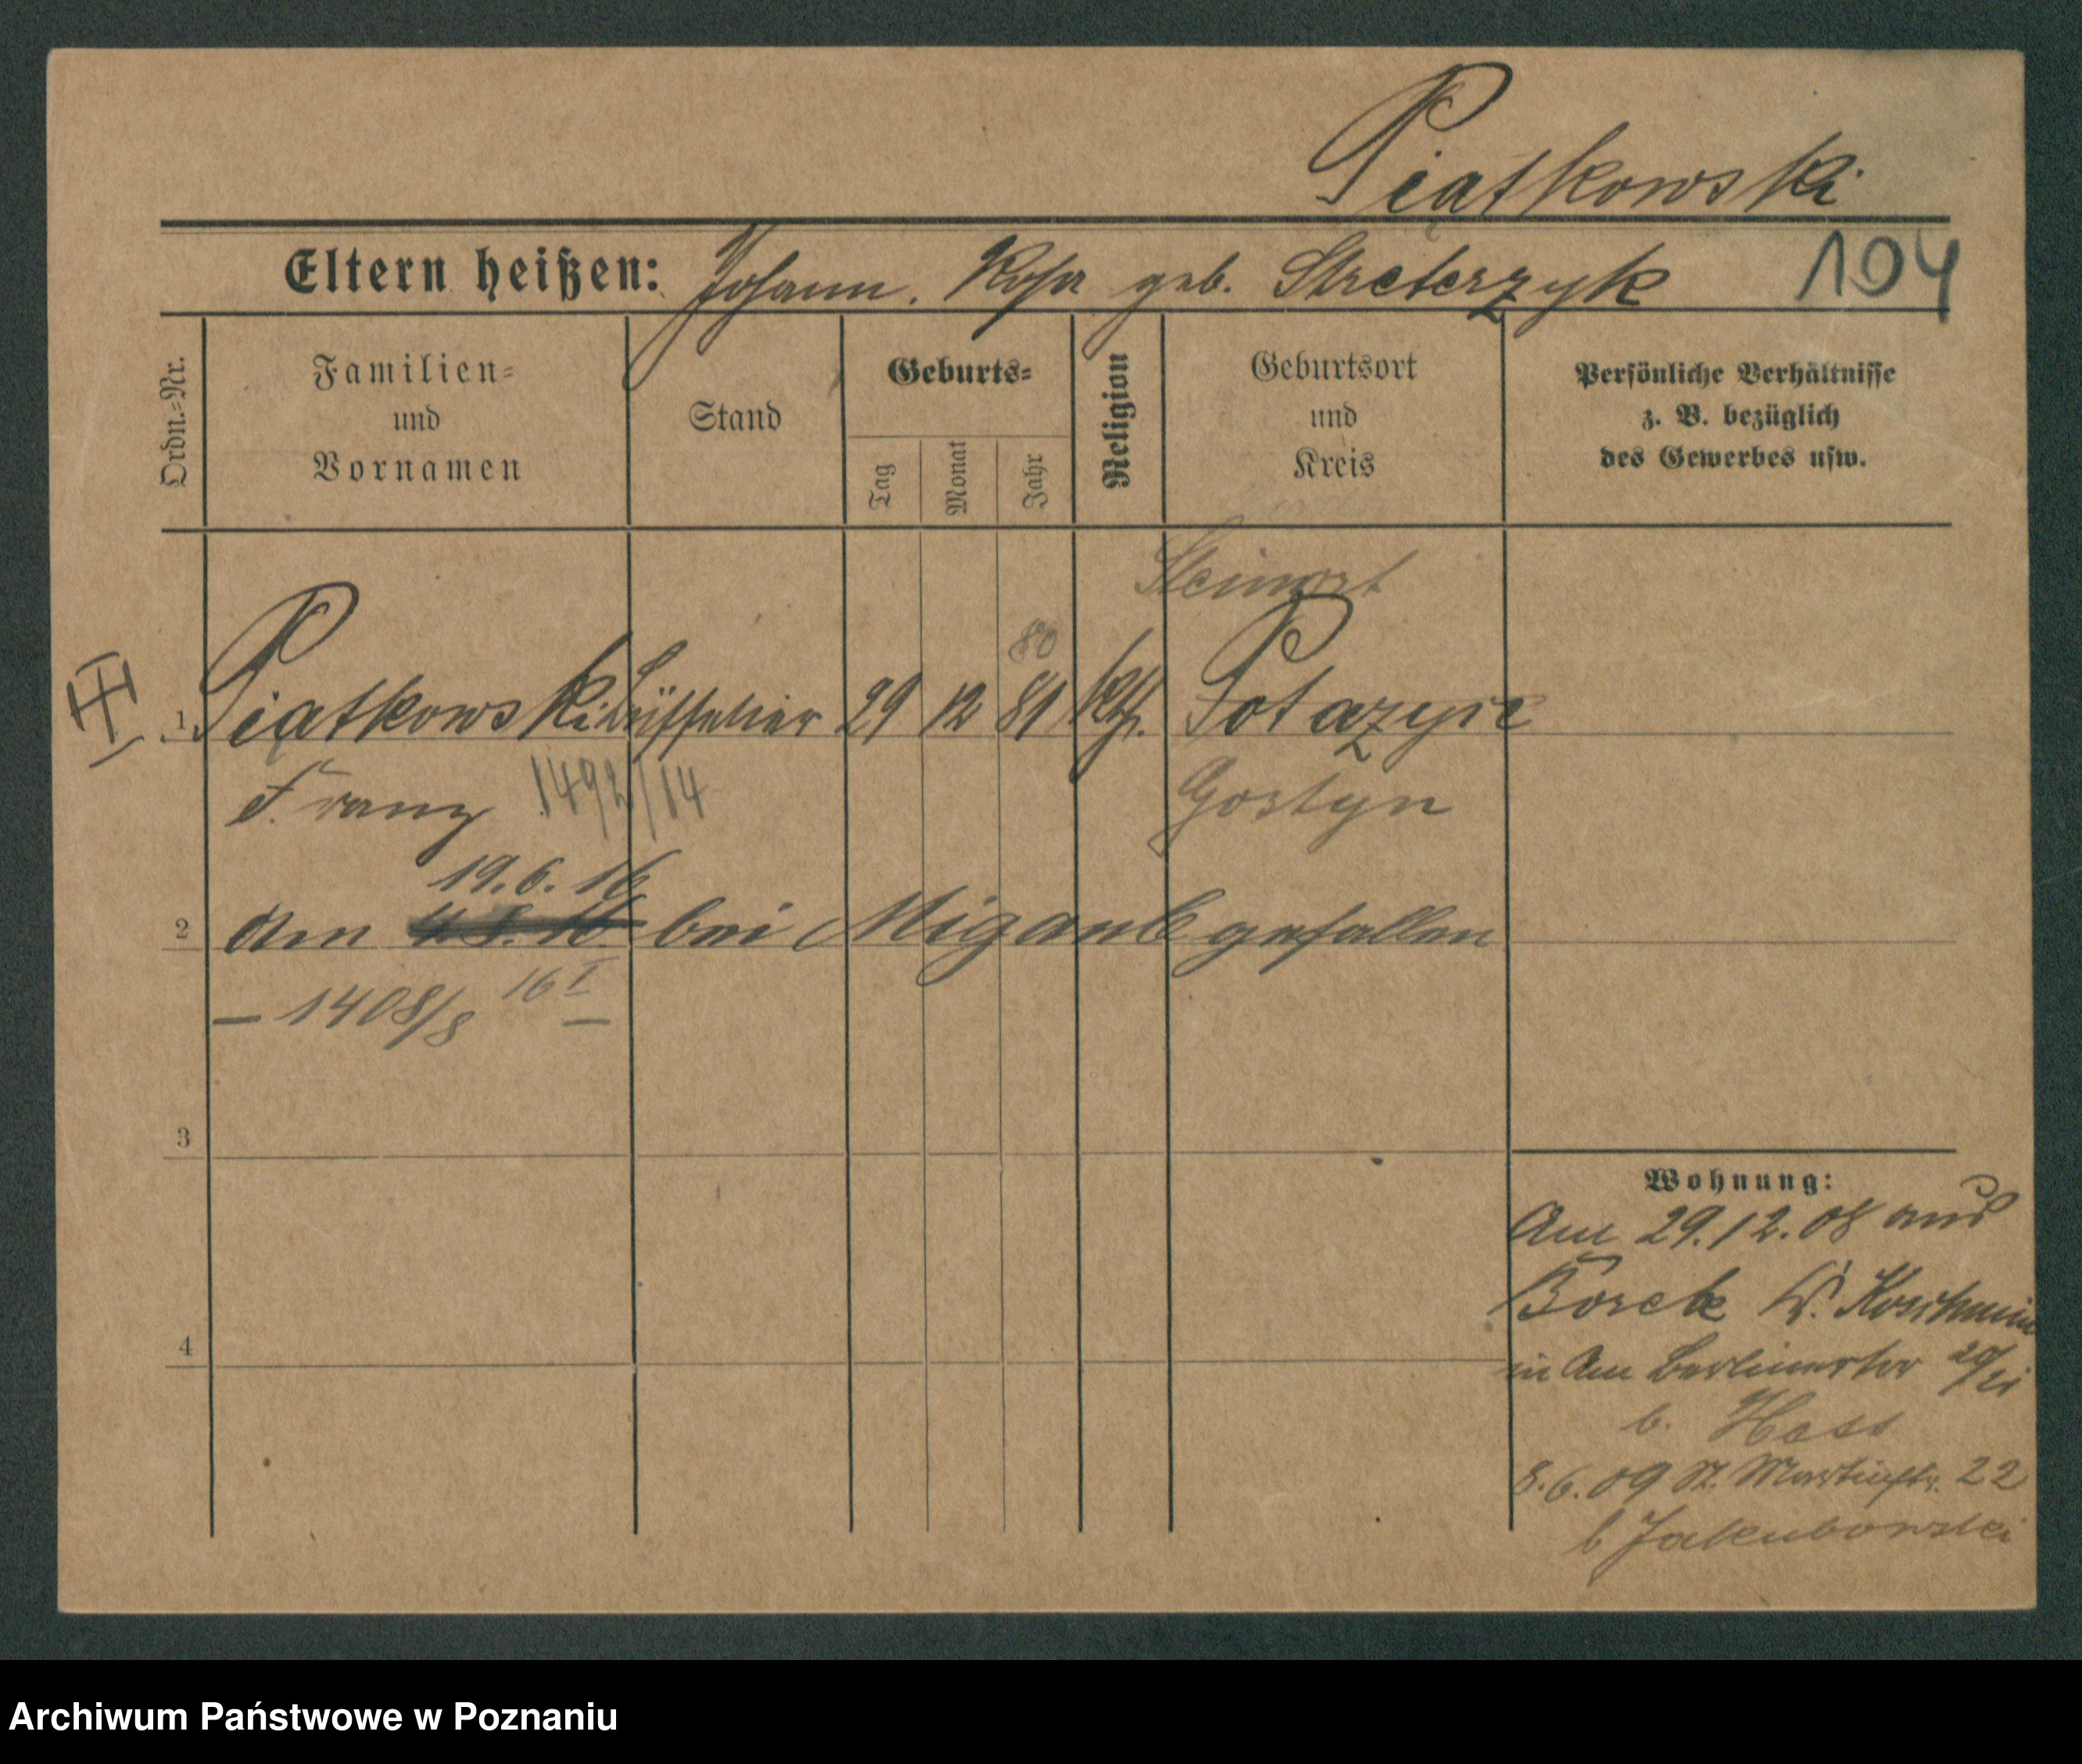 Piątkowski
Eltern heißen: Johann. Rosa geb. Streterzyk 104
Ordn.=Nr.
Familien=
und
Vornamen
Stand
Geburts=
Tag
Monat
Jahr
Religion
Geburtsort
und
Kreis
Persönliche Verhältnisse
z. B. bezüglich
des Gewerbes usw.
80
1 Piątkowski 29 12 81 kth.
Gostyn
Franz 1492/14
19.6.16
2 am bei gefallen
– 1408/8 16 I –
3
4
Wohnung:
Am 29.12.08 aus
Borek K. Koschmin
in Am Berlinertor
b. Hass
8.6.09 St. Martinstr. 22
b Jakubowski
Archiwum Państwowe w Poznaniu